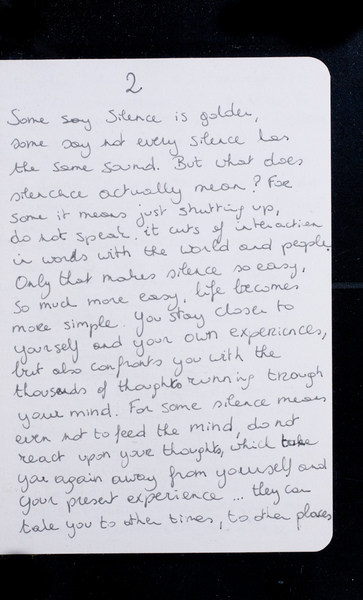 2
Some say Silence is golden,
some say not every silence has
the same sound. But what does
silencnce actually mean? For
some it means just shutting up,
do not speak. it cuts of interaction
in words with the world and people.
Only that makes silence so easy,
So much more easy, life becomes
more simple. You stay closer to
yourself and your own experiences,
but also confronts you with the
thousands of thoughts running trough
your mind. For some silence means
even not to feed the mind, do not
react upon youre thoughts, which take
you again away from yourself and
your present experience ... they can
take you to other times, to other places